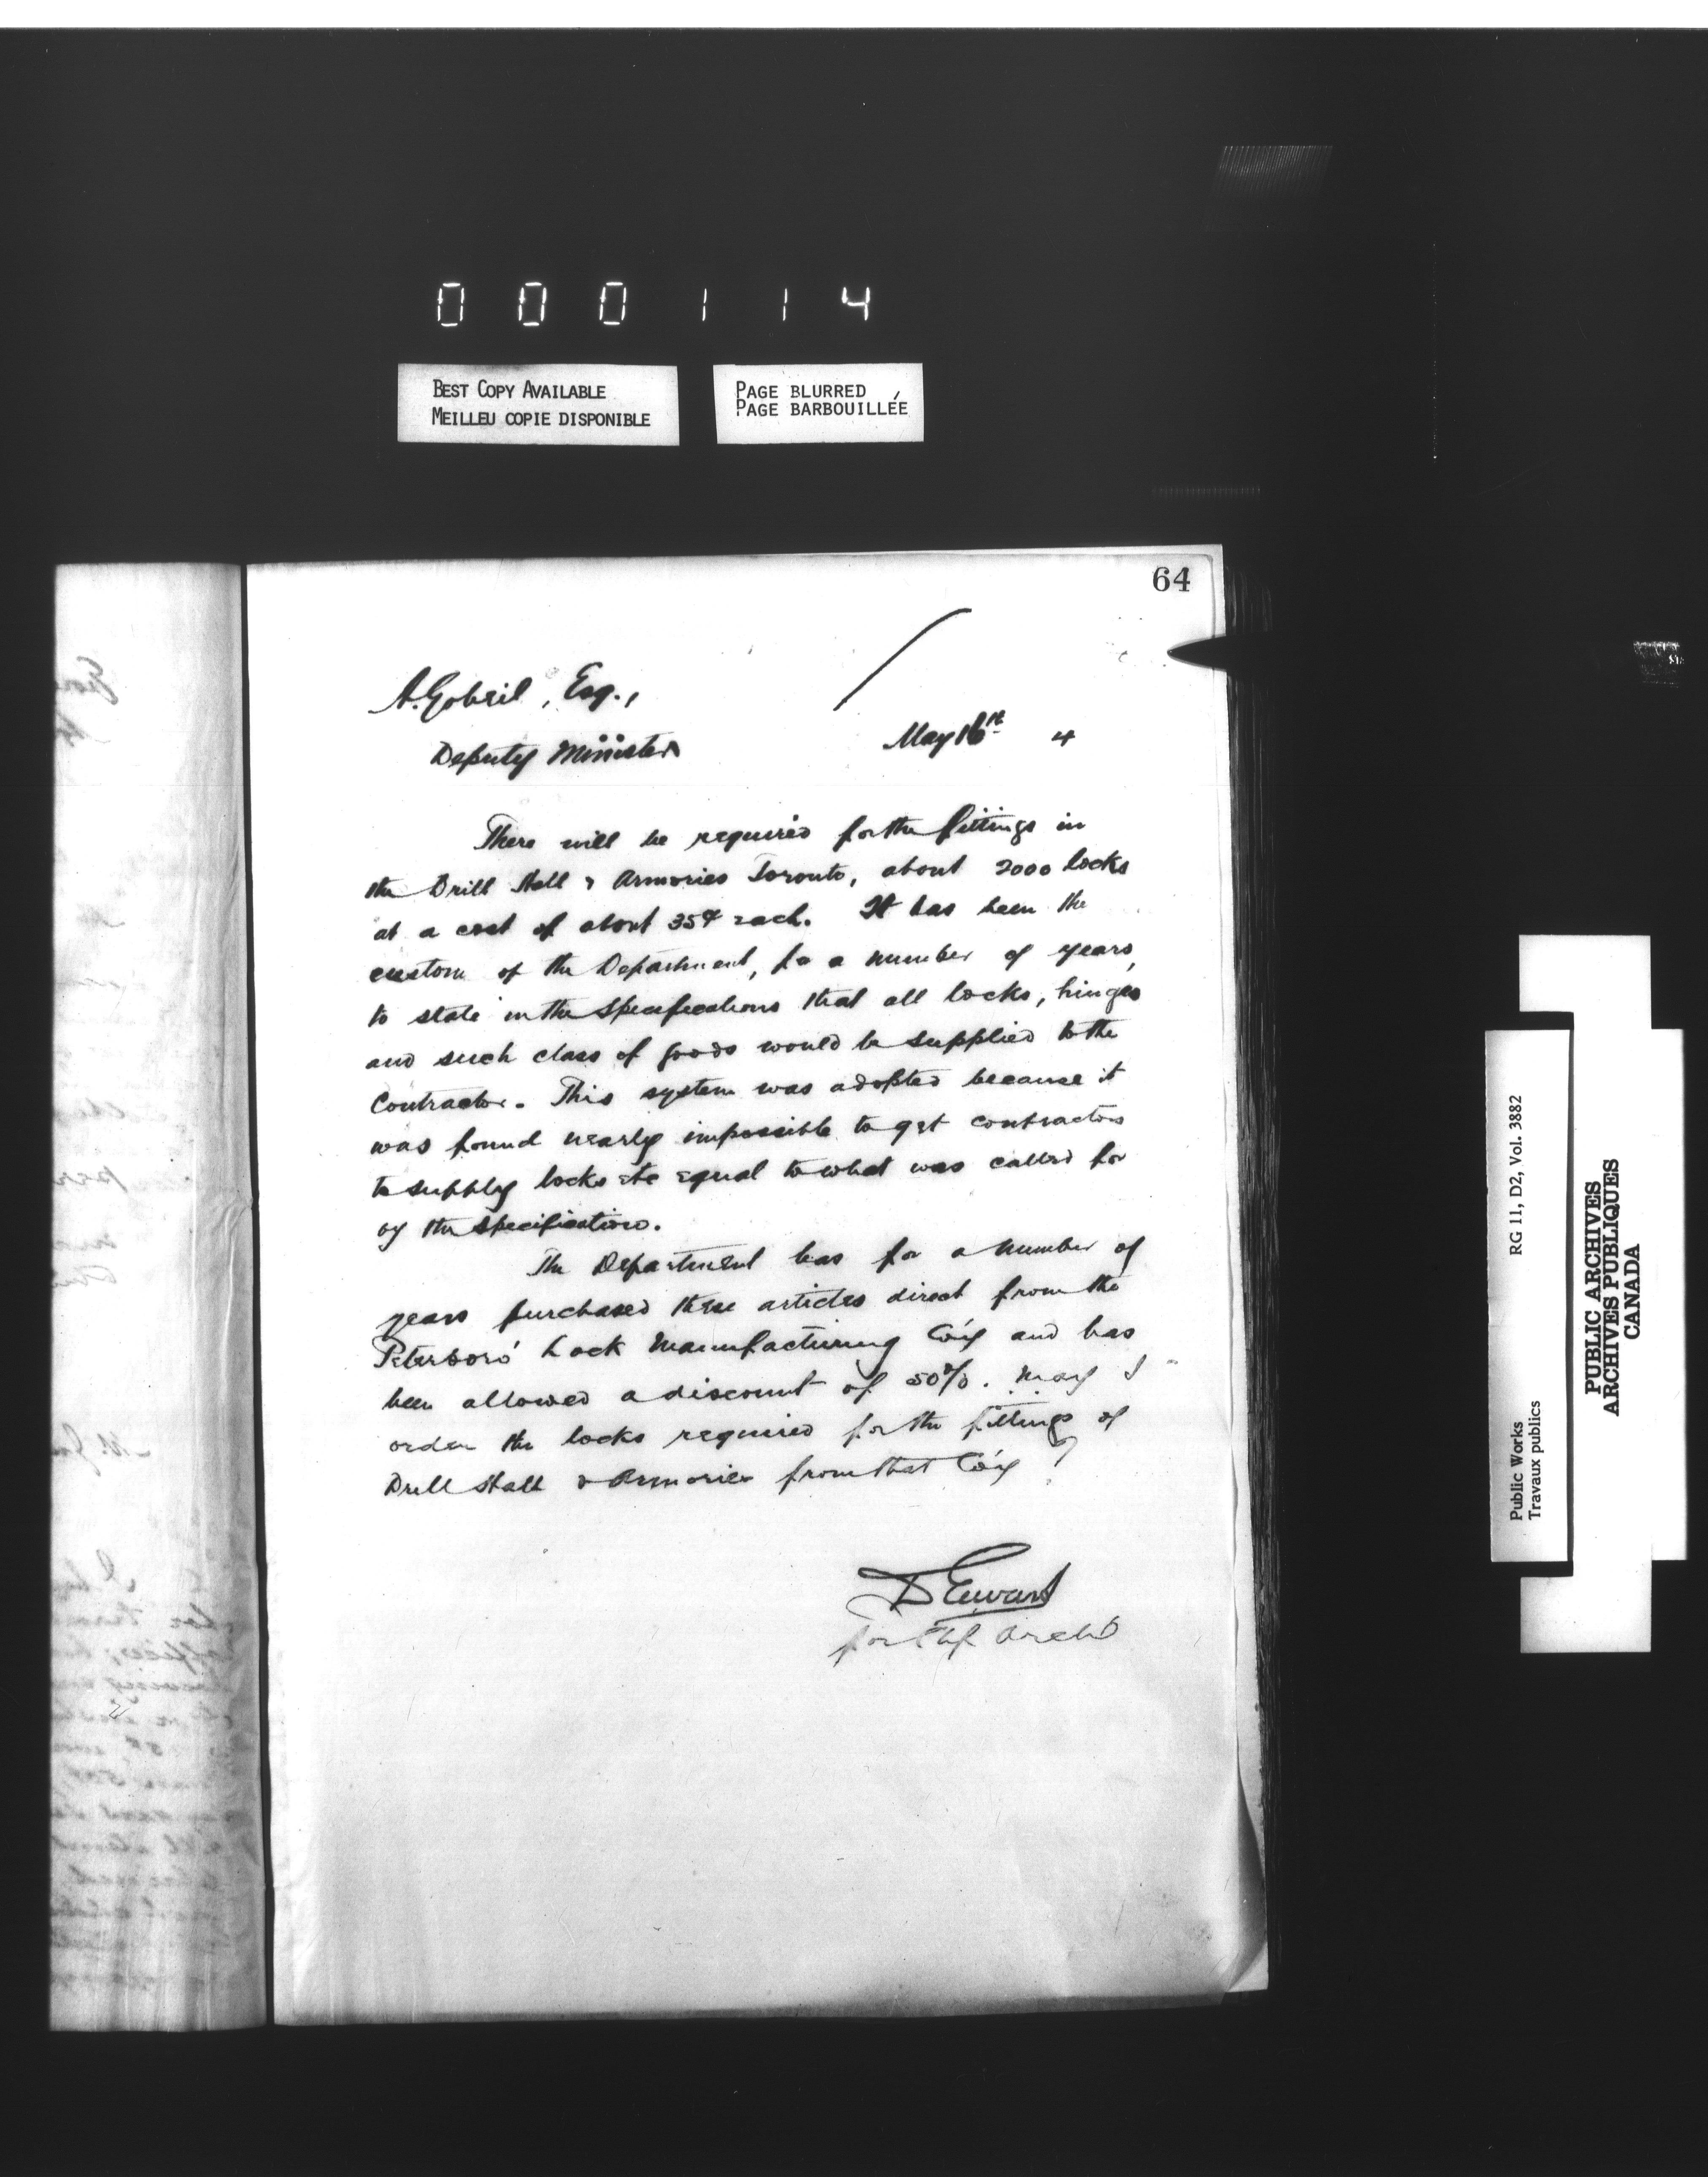 0 0 0 1 1 4
BEST COPY AVAILABLE
MEILLEU COPIE DISPONIBLE
PAGE BLURRED
PAGE BARBOUILLÉE
64
A. Gobeil, Esq.,
Deputy Minister
May 16th 4
There will be required for the fittings in
the Drill Hall & Armories Toronto, about 2000 locks
at a cost of about 35¢ each. It has been the
custom of the Department, for a number of years,
to state in the specifications that all locks, hinges
and such class of goods would be supplied to the
Contractor. This system was adopted because it
was found nearly impossible to get contractors
to supply locks etc equal to what was called for
by the specifications.
The Department has for a number of
years purchased these articles direct from the
Peterboro' Lock Manufacturing Co'y and has
been allowed a discount of 50%. May I
order the locks required for the fittings of
Drill Hall & Armories from that Co'y ?
D Ewart
for Chf Archt
RG 11, D2, Vol. 3882
Public Works
Travaux publics
PUBLIC ARCHIVES
ARCHIVES PUBLIQUES
CANADA